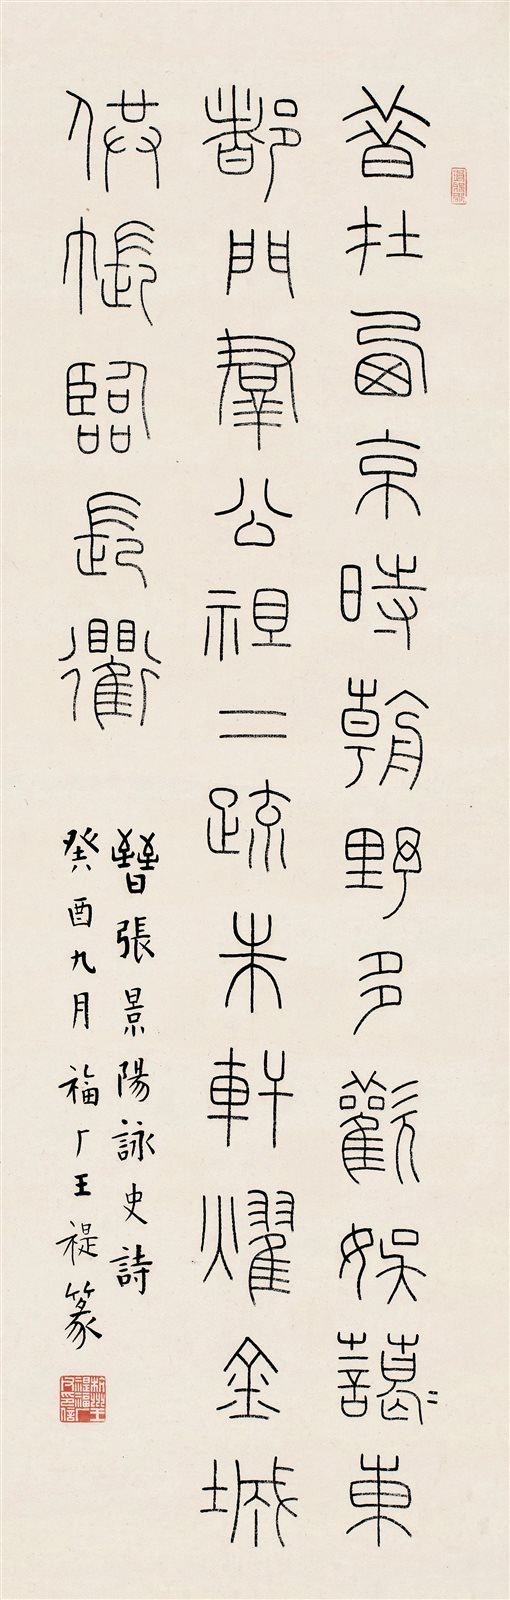 昔在西京時朝野多歡娛藹〻東
都門羣公祖二疏朱軒燿金城
供帳臨長衢
晉張景陽詠史詩
癸酉九月福厂王禔篆